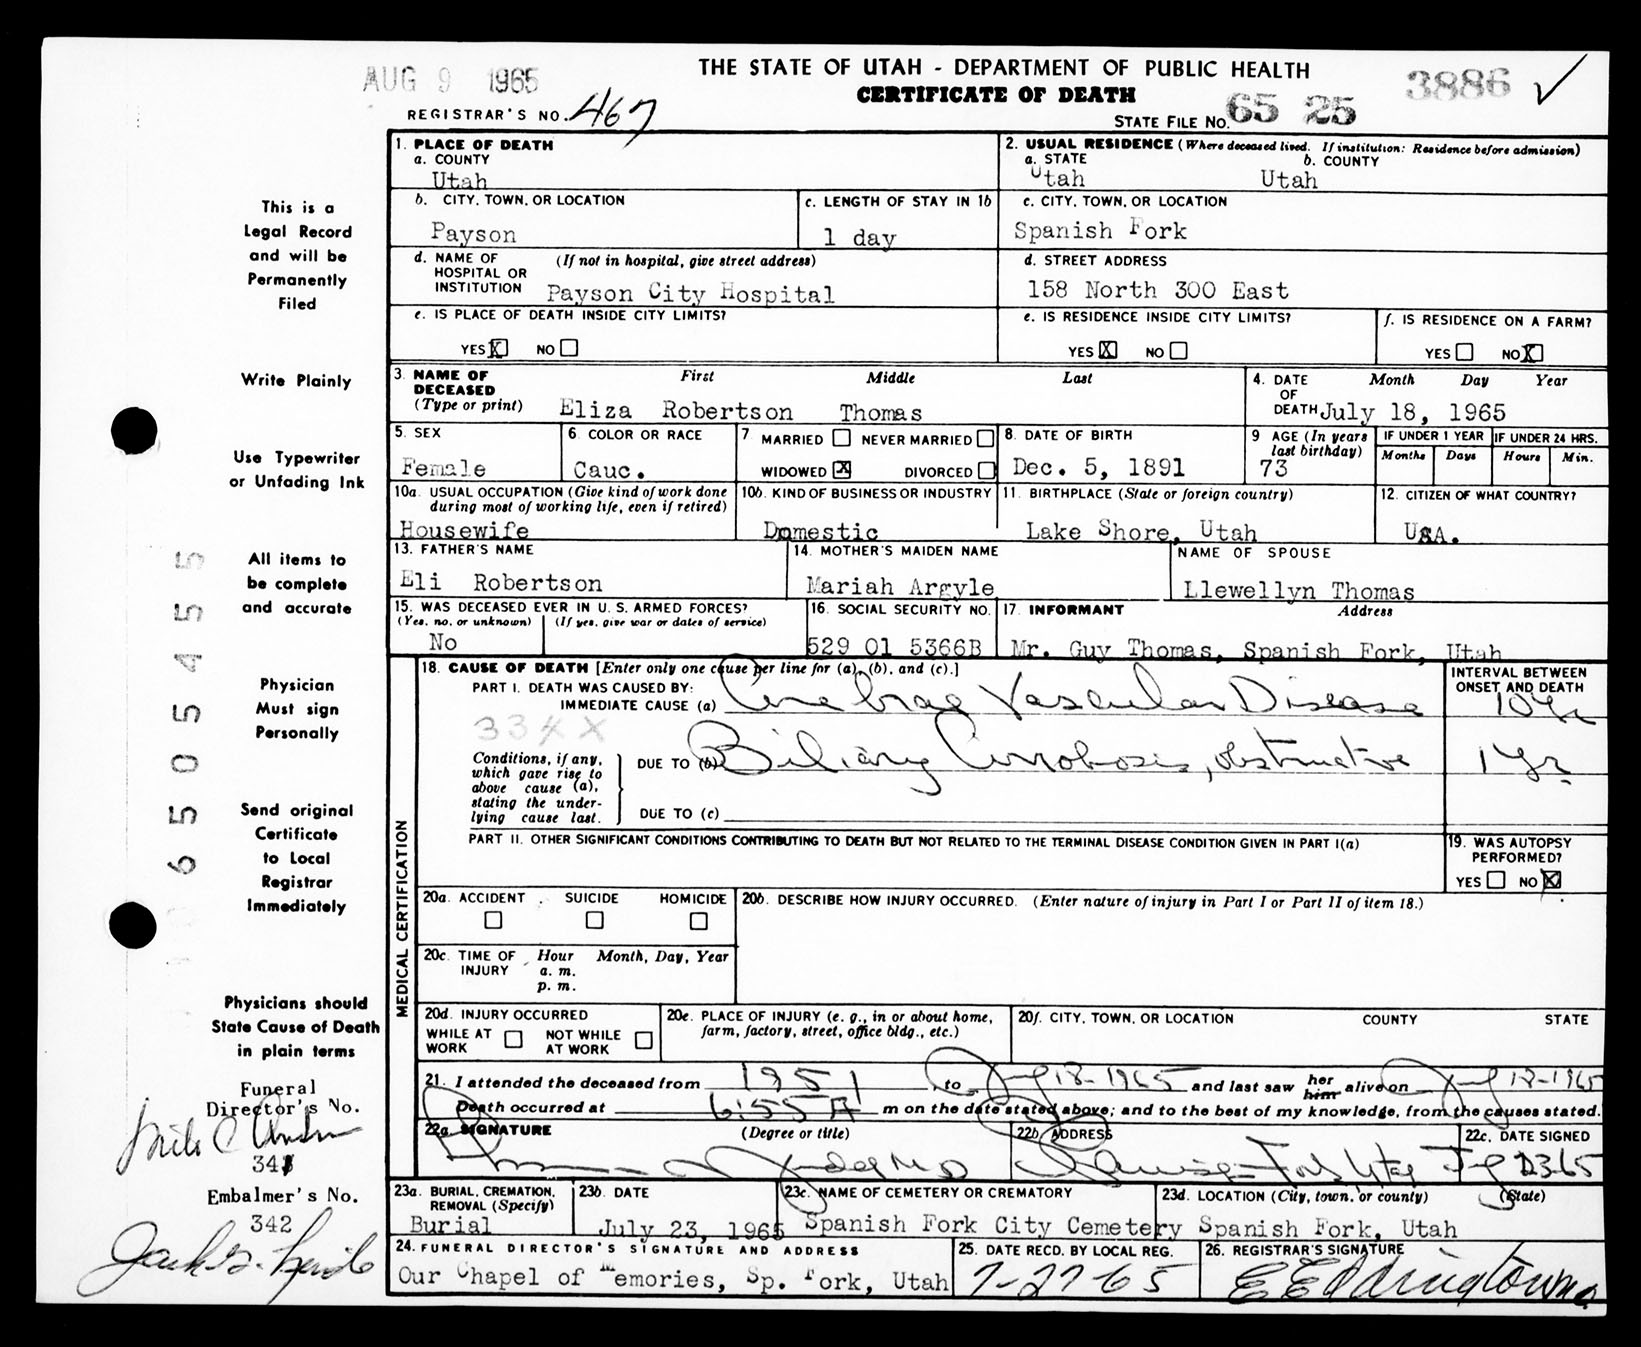 AUG 9 1965
THE STATE OF UTAH - DEPARTMENT OF PUBLIC HEALTH
CERTIFICATE OF DEATH
3886 ✓
REGISTRAR'S NO. 467
STATE FILE NO. 65 25
This is a
Legal Record
and will be
Permanently
Filed
Write Plainly
Use Typewriter
or Unfading Ink
All items to
be complete
and accurate
Physician
Must sign
Personally
Send original
Certificate
to Local
Registrar
Immediately
Physicians should
State Cause of Death
in plain terms
Funeral
Director's No.
34
Embalmer's No.
342
6505455
1. PLACE OF DEATH
a. COUNTY
Utah
2. USUAL RESIDENCE (Where deceased lived. If institution: Residence before admission)
a. STATE b. COUNTY
Utah Utah
b. CITY, TOWN, OR LOCATION
Payson
c. LENGTH OF STAY IN 1b
1 day
c. CITY, TOWN, OR LOCATION
Spanish Fork
d. NAME OF HOSPITAL OR INSTITUTION (If not in hospital, give street address)
Payson City Hospital
d. STREET ADDRESS
158 North 300 East
e. IS PLACE OF DEATH INSIDE CITY LIMITS?
YES X NO
e. IS RESIDENCE INSIDE CITY LIMITS?
YES X NO
f. IS RESIDENCE ON A FARM?
YES NO X
3. NAME OF DECEASED (Type or print)
First Middle Last
Eliza Robertson Thomas
4. DATE OF DEATH Month Day Year
July 18, 1965
5. SEX
Female
6. COLOR OR RACE
Cauc.
7. MARRIED NEVER MARRIED
WIDOWED X DIVORCED
8. DATE OF BIRTH
Dec. 5, 1891
9 AGE (In years last birthday)
73
IF UNDER 1 YEAR
Months Days
IF UNDER 24 HRS.
Hours Min.
10a. USUAL OCCUPATION (Give kind of work done during most of working life, even if retired)
Housewife
10b. KIND OF BUSINESS OR INDUSTRY
Domestic
11. BIRTHPLACE (State or foreign country)
Lake Shore, Utah
12. CITIZEN OF WHAT COUNTRY?
USA.
13. FATHER'S NAME
Eli Robertson
14. MOTHER'S MAIDEN NAME
Mariah Argyle
NAME OF SPOUSE
Llewellyn Thomas
15. WAS DECEASED EVER IN U. S. ARMED FORCES?
(Yes, no, or unknown) (If yes, give war or dates of service)
No
16. SOCIAL SECURITY NO.
529 01 5366B
17. INFORMANT Address
Mr. Guy Thomas, Spanish Fork, Utah
MEDICAL CERTIFICATION
18. CAUSE OF DEATH [Enter only one cause per line for (a), (b), and (c).]
PART I. DEATH WAS CAUSED BY:
IMMEDIATE CAUSE (a) Cerebral Vascular Disease
334X
Conditions, if any, which gave rise to above cause (a), stating the underlying cause last.
DUE TO (b) Biliary Cirrhosis, obstructive
DUE TO (c)
INTERVAL BETWEEN ONSET AND DEATH
10 Yr
1 Yr
PART II. OTHER SIGNIFICANT CONDITIONS CONTRIBUTING TO DEATH BUT NOT RELATED TO THE TERMINAL DISEASE CONDITION GIVEN IN PART I(a)
19. WAS AUTOPSY PERFORMED?
YES NO X
20a. ACCIDENT SUICIDE HOMICIDE
20b. DESCRIBE HOW INJURY OCCURRED. (Enter nature of injury in Part I or Part II of item 18.)
20c. TIME OF INJURY Hour Month, Day, Year
a. m.
p. m.
20d. INJURY OCCURRED
WHILE AT WORK NOT WHILE AT WORK
20e. PLACE OF INJURY (e. g., in or about home, farm, factory, street, office bldg., etc.)
20f. CITY, TOWN, OR LOCATION COUNTY STATE
21. I attended the deceased from 1951 to July 18-1965 and last saw her him alive on July 18-1965
Death occurred at 6:55 A m on the date stated above; and to the best of my knowledge, from the causes stated.
22a. SIGNATURE (Degree or title)
MD
22b. ADDRESS
Spanish Fork Utah
22c. DATE SIGNED
July 23-65
23a. BURIAL, CREMATION, REMOVAL (Specify)
Burial
23b. DATE
July 23, 1965
23c. NAME OF CEMETERY OR CREMATORY
Spanish Fork City Cemetery
23d. LOCATION (City, town, or county) (State)
Spanish Fork, Utah
24. FUNERAL DIRECTOR'S SIGNATURE AND ADDRESS
Our Chapel of Memories, Sp. Fork, Utah
25. DATE RECD. BY LOCAL REG.
7-27-65
26. REGISTRAR'S SIGNATURE
E E Eddington MD